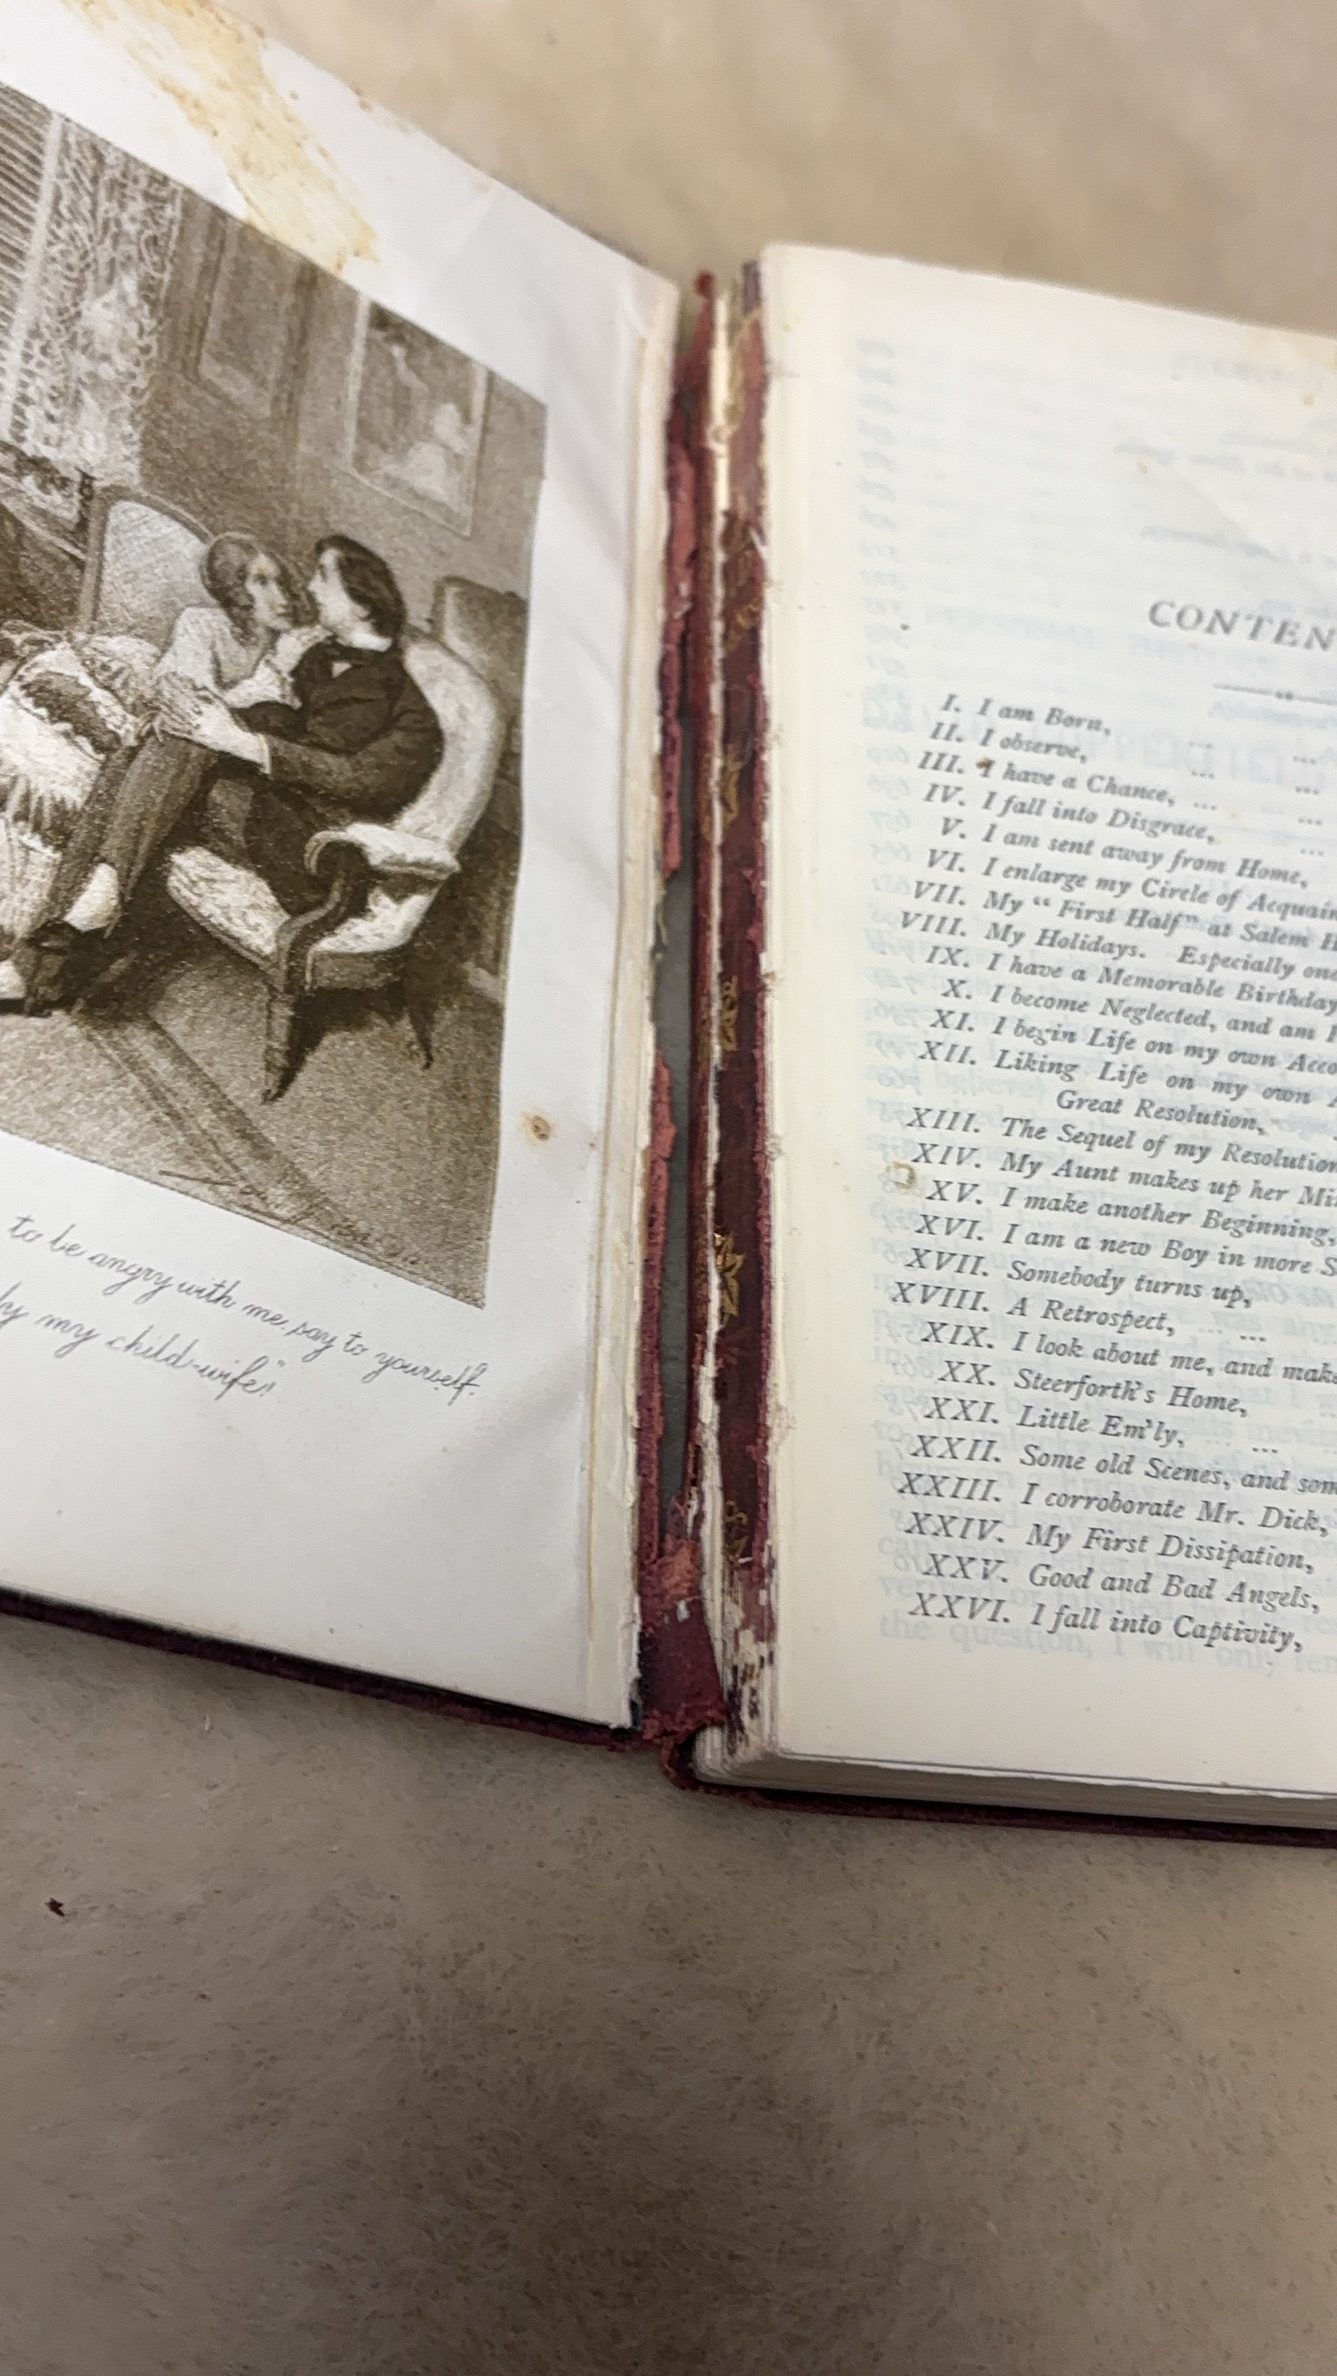 to be angry with me, say to yourself.
my child-wife!"
CONTEN
I. I am Born, ... ...
II. I observe, ... ...
III. I have a Chance, ... ...
IV. I fall into Disgrace, ...
V. I am sent away from Home,
VI. I enlarge my Circle of Acquain
VII. My "First Half" at Salem H
VIII. My Holidays. Especially one
IX. I have a Memorable Birthday
X. I become Neglected, and am
XI. I begin Life on my own Acco
XII. Liking Life on my own A
Great Resolution,
XIII. The Sequel of my Resolution
XIV. My Aunt makes up her Mi
XV. I make another Beginning,
XVI. I am a new Boy in more S
XVII. Somebody turns up,
XVIII. A Retrospect, ... ...
XIX. I look about me, and make
XX. Steerforth's Home, ...
XXI. Little Em'ly, ... ...
XXII. Some old Scenes, and som
XXIII. I corroborate Mr. Dick,
XXIV. My First Dissipation,
XXV. Good and Bad Angels,
XXVI. I fall into Captivity,
the question, I will only